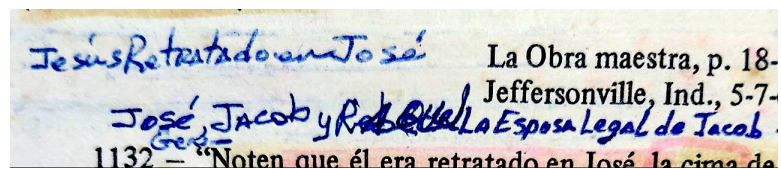 Jesús Retratado en José
La Obra maestra, p. 18-
Jeffersonville, Ind., 5-7-
José, Jacob y Raquel La Esposa Legal de Jacob.
1132 – “Noten que él era retratado en José, la cima de